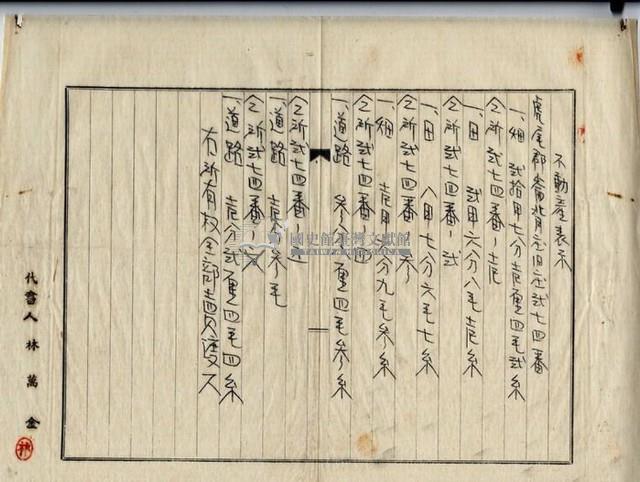 不動產表示
虎尾郡崙背庄旧庄弍七四番
一、畑　弍拾甲七分壱厘四毛弍糸
仝所弍七四番ノ壱
一、田　弍甲六分八毛壱糸
仝所弍七四番ノ弍
一、田　八甲七分六毛七糸
仝所弍七四番ノ参
一、畑　壱甲分九毛参糸
仝所弍七四番
一、道路　参分厘四毛参糸
仝所弍七四番ノ五
一、道路　壱分参毛
仝所弍七四番ノ六
一、道路　壱分弍厘四毛四糸
右所有权全部賣買ス
國史館臺灣文獻館
TAIWAN HISTORICA
代書人 林萬金
林